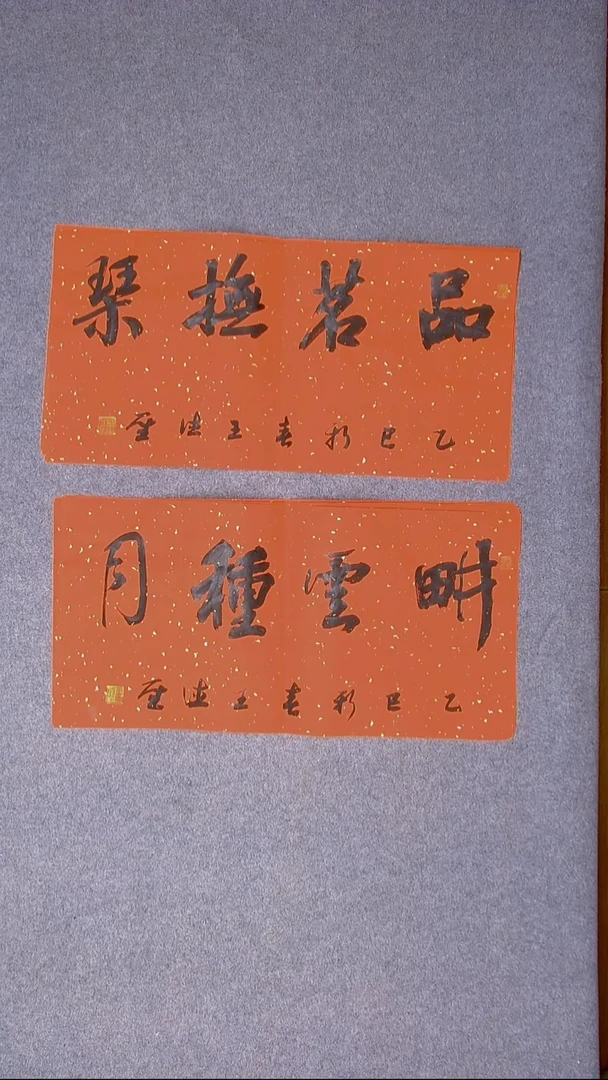 品茗撫琴
乙巳新春王德
畊雲種月
乙巳新春王德